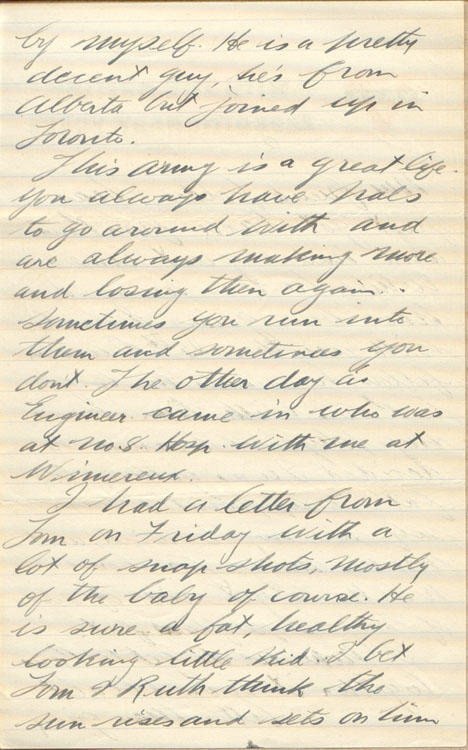 by myself. He is a pretty
decent guy, he's from
Alberta but joined up in
Toronto.
This army is a great life.
you always have pals
to go around with and
are always making more
and losing them again.
sometimes you run into
them and sometimes you
dont. The other day as
Engineer came in who was
at no 8. Hosp. with me at
Wimereux.
I had a letter from
Tom on Friday with a
lot of snap shots, mostly
of the baby of course. He
is sure a fat, healthy
looking little kid. I bet
Tom & Ruth think the
sun rises and sets on him